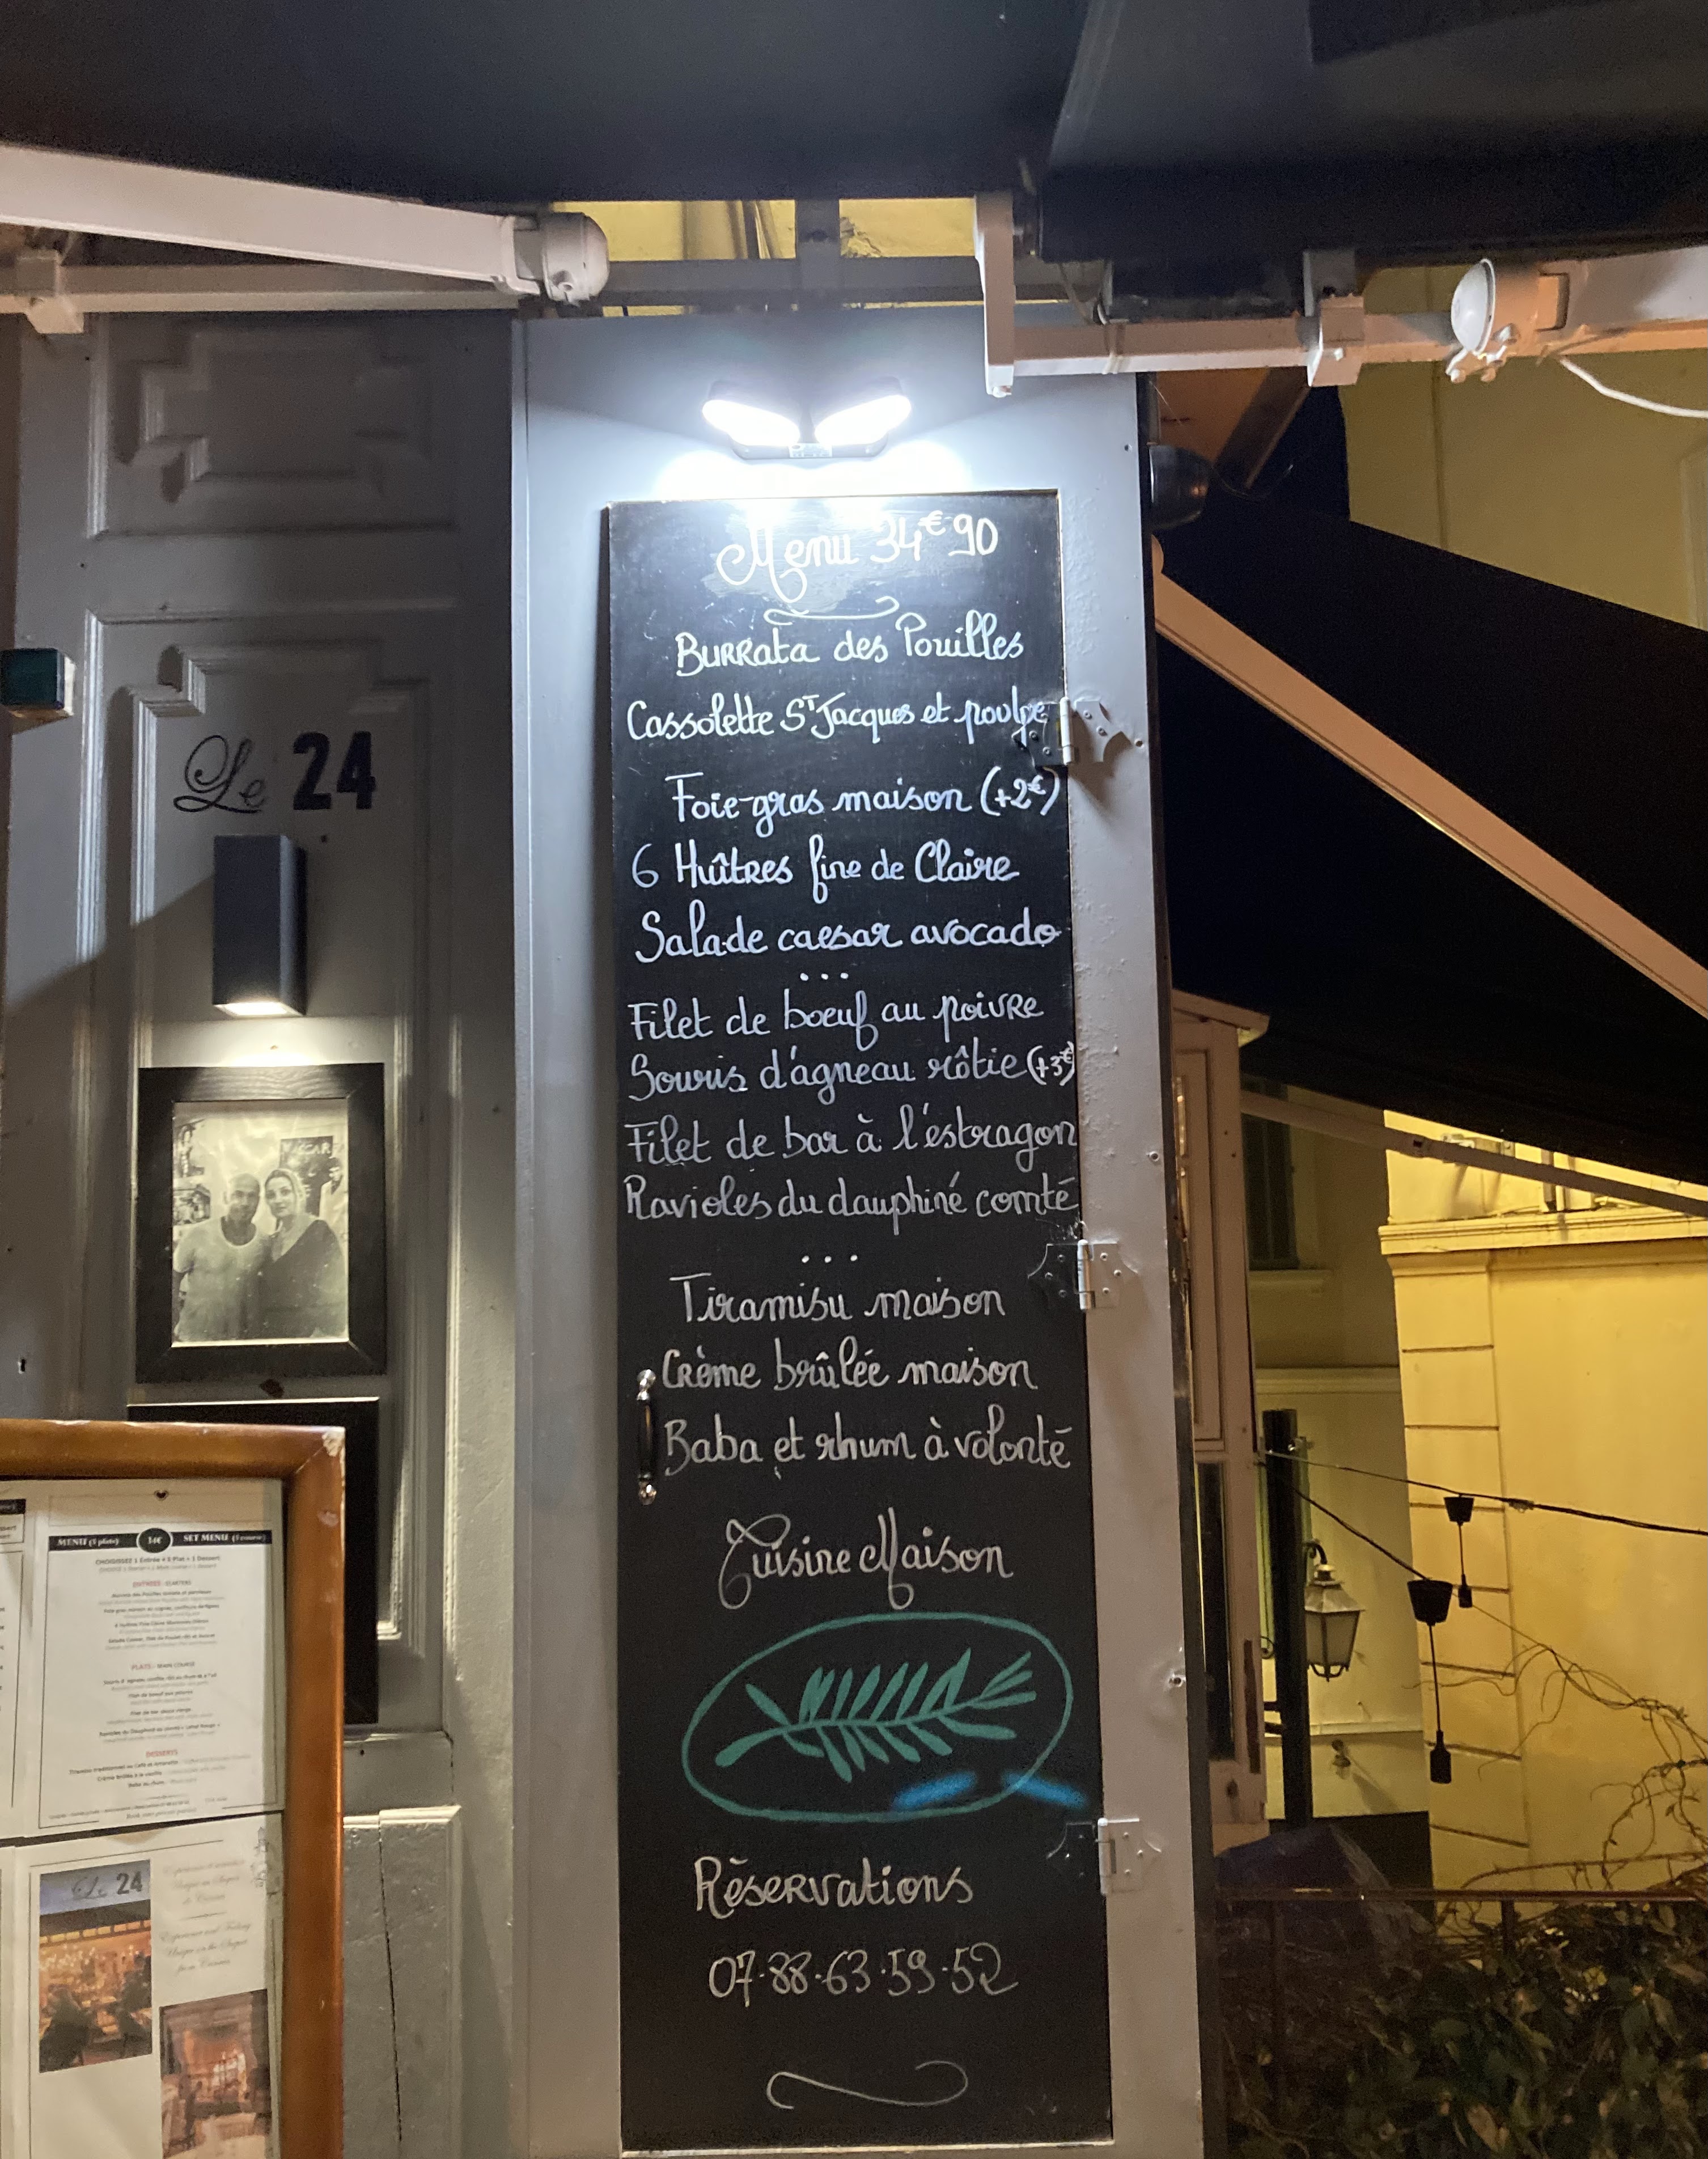 Menu 34€90
Burrata des Pouilles
Cassolette ST Jacques et poulpe
Foie-gras maison (+2€)
6 Huîtres fine de Claire
Salade caesar avocado
...
Filet de boeuf au poivre
Souris d'agneau rôtie (+3€)
Filet de bar à l'éstragon
Ravioles du dauphiné comté
...
Tiramisu maison
Crème brûlée maison
Baba et rhum à volonté
Cuisine Maison
Réservations
07.88.63.59.52
Le 24
MENU (3 plats) 34€ SET MENU (3 course)
CHOISISSEZ 1 Entrée + 1 Plat + 1 Dessert
ENTREES STARTERS
PLATS MAIN COURSE
Filet de boeuf aux poivres
DESSERTS
Le 24